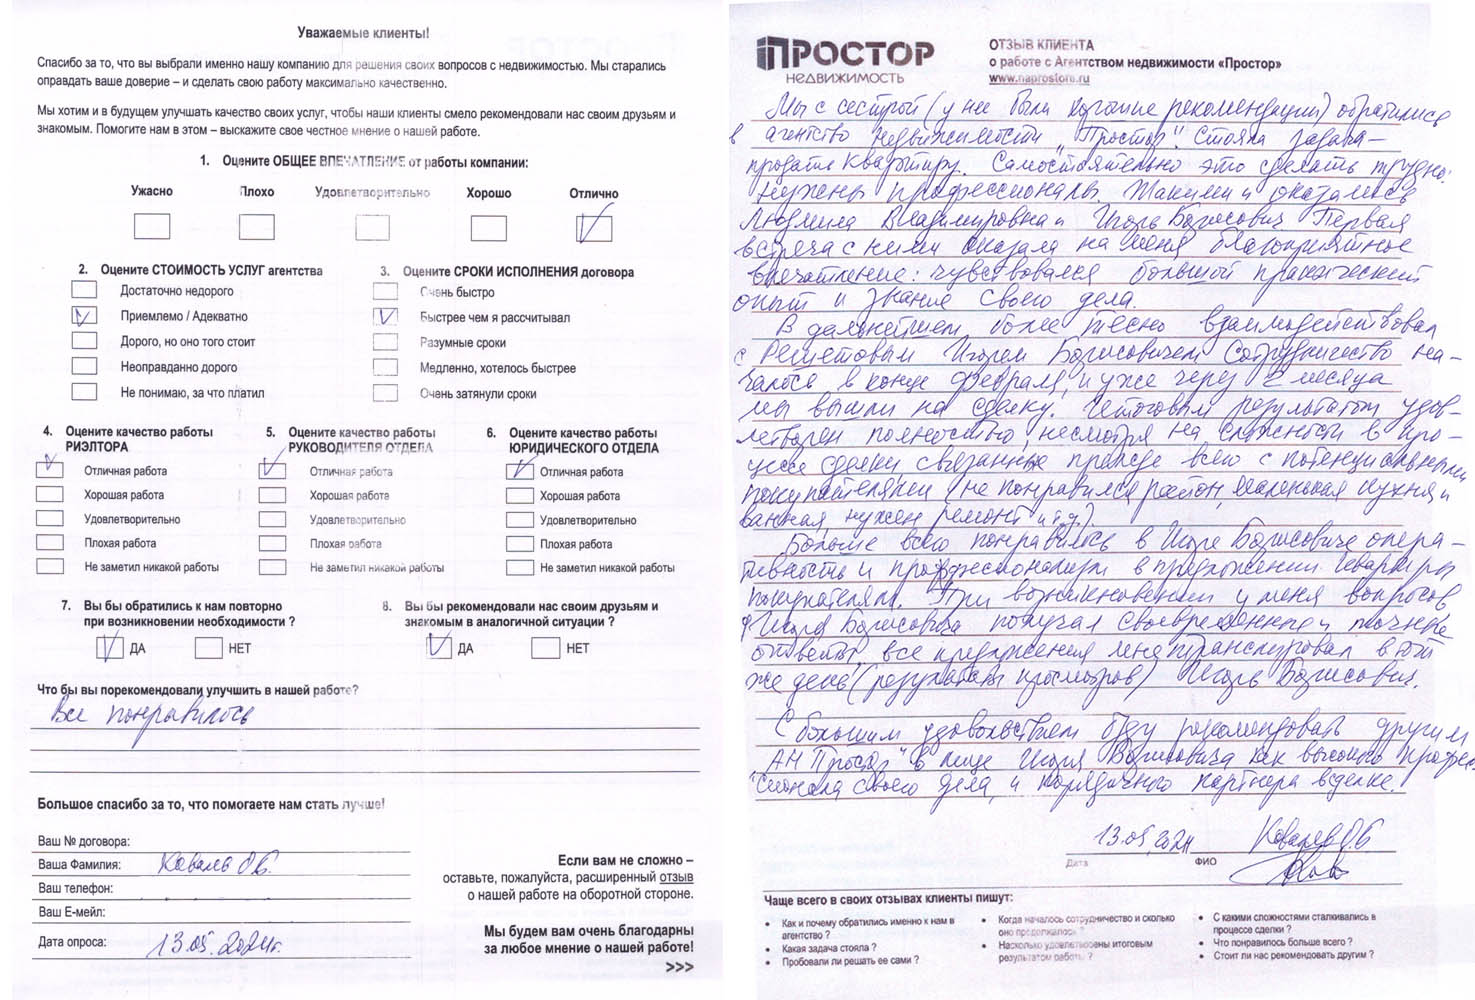 Уважаемые клиенты!
Спасибо за то, что вы выбрали именно нашу компанию для решения своих вопросов с недвижимостью. Мы старались
оправдать ваше доверие – и сделать свою работу максимально качественно.
Мы хотим и в будущем улучшать качество своих услуг, чтобы наши клиенты смело рекомендовали нас своим друзьям и
знакомым. Помогите нам в этом – выскажите свое честное мнение о нашей работе.
1. Оцените ОБЩЕЕ ВПЕЧАТЛЕНИЕ от работы компании:
Ужасно Плохо Удовлетворительно Хорошо Отлично
2. Оцените СТОИМОСТЬ УСЛУГ агентства
Достаточно недорого
Приемлемо / Адекватно
Дорого, но оно того стоит
Неоправданно дорого
Не понимаю, за что платил
3. Оцените СРОКИ ИСПОЛНЕНИЯ договора
Очень быстро
Быстрее чем я рассчитывал
Разумные сроки
Медленно, хотелось быстрее
Очень затянули сроки
4. Оцените качество работы
РИЭЛТОРА
Отличная работа
Хорошая работа
Удовлетворительно
Плохая работа
Не заметил никакой работы
5. Оцените качество работы
РУКОВОДИТЕЛЯ ОТДЕЛА
Отличная работа
Хорошая работа
Удовлетворительно
Плохая работа
Не заметил никакой работы
6. Оцените качество работы
ЮРИДИЧЕСКОГО ОТДЕЛА
Отличная работа
Хорошая работа
Удовлетворительно
Плохая работа
Не заметил никакой работы
7. Вы бы обратились к нам повторно
при возникновении необходимости ?
ДА НЕТ
8. Вы бы рекомендовали нас своим друзьям и
знакомым в аналогичной ситуации ?
ДА НЕТ
Что бы вы порекомендовали улучшить в нашей работе?
Все понравилось
Большое спасибо за то, что помогаете нам стать лучше!
Ваш № договора:
Ваша Фамилия: Ковалев О.Б.
Ваш телефон:
Ваш Е-мейл:
Дата опроса: 13.05.2024г.
Если вам не сложно –
оставьте, пожалуйста, расширенный отзыв
о нашей работе на оборотной стороне.
Мы будем вам очень благодарны
за любое мнение о нашей работе!
>>>
ПРОСТОР
НЕДВИЖИМОСТЬ
ОТЗЫВ КЛИЕНТА
о работе с Агентством недвижимости «Простор»
www.naprostore.ru
Мы с сестрой (у нее были хорошие рекомендации) обратились
в агентство недвижимости "Простор". Стояла задача –
продать квартиру. Самостоятельно это сделать трудно:
нужны профессионалы. Такими и оказались
Людмила Владимировна и Игорь Борисович. Первая
встреча с ними оказала на меня благоприятное
впечатление: чувствовался большой практический
опыт и знание своего дела.
В дальнейшем более тесно взаимодействовал
с Решетовым Игорем Борисовичем. Сотрудничество на-
чалось в конце февраля, и уже через 2 месяца
мы вышли на сделку. Итоговым результатом удов-
летворен полностью, несмотря на сложности в про-
цессе сделки, связанные прежде всего с потенциальными
покупателями (не понравился район, маленькая кухня и
ванная, нужен ремонт и т.д.).
Больше всего понравились в Игоре Борисовиче опера-
тивность и профессионализм в предложении квартиры
покупателям. При возникновении у меня вопросов
у Игоря Борисовича получал своевременные и точные
ответы, все предложения мне транслировал в тот
же день (результаты просмотров) Игорь Борисович.
С большим удовольствием буду рекомендовать другим
АН "Простор" в лице Игоря Борисовича как высокого профес-
сионала своего дела, и порядочного партнера в сделке.
13.05.2024 Ковалев О.Б.
Дата ФИО
Чаще всего в своих отзывах клиенты пишут:
• Как и почему обратились именно к нам в
агентство ?
• Какая задача стояла ?
• Пробовали ли решать ее сами ?
• Когда началось сотрудничество и сколько
оно продолжалось ?
• Насколько удовлетворены итоговым
результатом работы ?
• С какими сложностями сталкивались в
процессе сделки ?
• Что понравилось больше всего ?
• Стоит ли нас рекомендовать другим ?